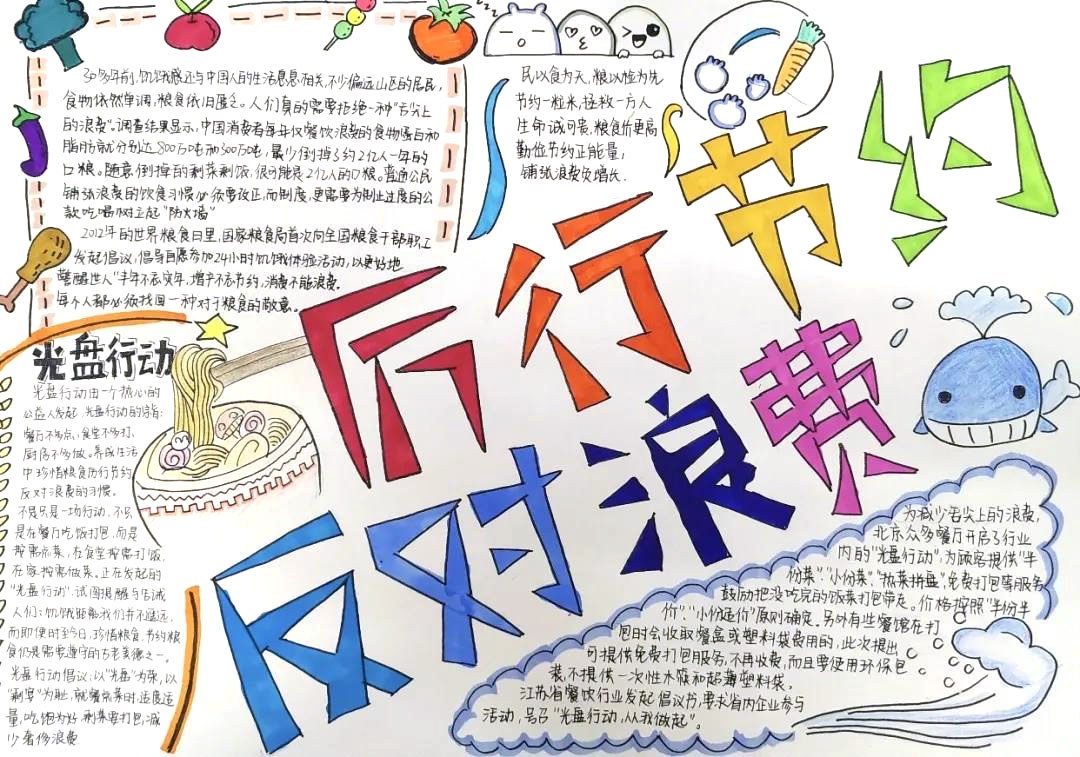 30多年前,饥饿感还与中国人的生活息息相关,不少偏远山区的居民,
食物依然单调,粮食依旧匮乏。人们真的需要拒绝一种“舌尖上
的浪费”。调查结果显示,中国消费者每年仅餐饮浪费的食物蛋白和
脂肪就分别达800万吨和300万吨,最少倒掉了约2亿人一年的
口粮。随意倒掉的剩菜剩饭,很可能是2亿人的口粮。普通公民
铺张浪费的饮食习惯必须要改正,而制度,更需要为制止过度的公
款吃喝树立起“防火墙”
2012年的世界粮食日里,国家粮食局首次向全国粮食干部职工
发起倡议,倡导自愿参加24小时饥饿体验活动,以更好地
警醒世人“丰年不忘灾年,增产不忘节约,消费不能浪费。
每个人都必须找回一种对于粮食的敬意。
民以食为天,粮以俭为先
节约一粒米,拯救一方人
生命诚可贵,粮食价更高
勤俭节约正能量,
铺张浪费负增长.
厉行节约
反对浪费
光盘行动
光盘行动由一个热心的
公益人发起,光盘行动的宗旨:
餐厅不多点、食堂不多打、
厨房不多做。养成生活
中珍惜粮食厉行节约
反对浪费的习惯。
不是只是一场行动,不只
是在餐厅吃饭打包,而是
按需点菜,在食堂按需打饭,
在家按需做菜。正在发起的
“光盘行动”,试图提醒与告诫
人们:饥饿距离我们并不遥远,
而即便时至今日,珍惜粮食,节约粮
食仍是需要遵守的古老美德之一。
光盘行动倡议:以“光盘”为荣,以
“剩宴”为耻,就餐点菜时,适度适
量,吃饱为好,剩菜要打包,减
少奢侈浪费
为减少舌尖上的浪费,
北京众多餐厅开启了行业
内的“光盘行动”,为顾客提供“半
份菜”、“小份菜”、“热菜拼盘”,免费打包等服务
鼓励把没吃完的饭菜打包带走。价格按照“半份半
价”、“小份适价”原则确定。另外有些餐馆在打
包时会收取餐盒或塑料袋费用的,此次提出
可提供免费打包服务,不再收费,而且要使用环保包
装,不提供一次性木筷和超薄塑料袋。
江苏省餐饮行业发起倡议书,要求省内企业参与
活动,号召“光盘行动,从我做起”。